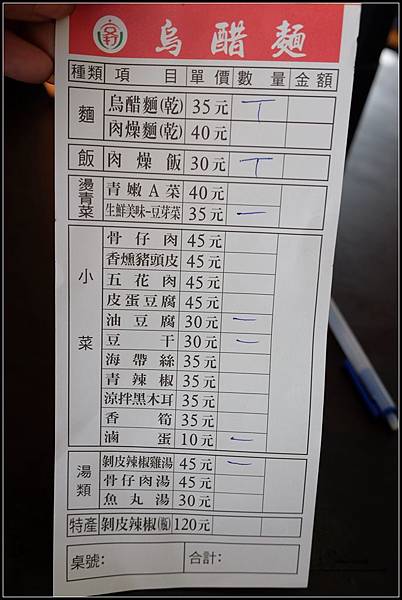 烏醋麵
種類 項目 單價 數量 金額
麵 烏醋麵(乾) 35元 丅
肉燥麵(乾) 40元
飯 肉燥飯 30元 丅
燙青菜 青嫩A菜 40元
生鮮美味-豆芽菜 35元 一
小菜 骨仔肉 45元
香燻豬頭皮 45元
五花肉 45元
皮蛋豆腐 45元
油豆腐 30元 一
豆干 30元 一
海帶絲 35元
青辣椒 35元
涼拌黑木耳 35元
香筍 35元
滷蛋 10元 一
湯類 剝皮辣椒雞湯 45元 一
骨仔肉湯 45元
魚丸湯 30元
特產 剝皮辣椒(瓶) 120元
桌號: 合計: